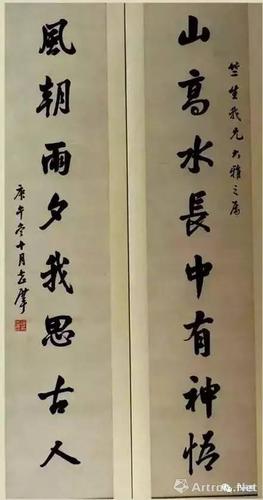 竺生我兄大雅之属
山高水長中有神悟
風朝雨夕我思古人
庚午冬十月志摩
Artron.Net